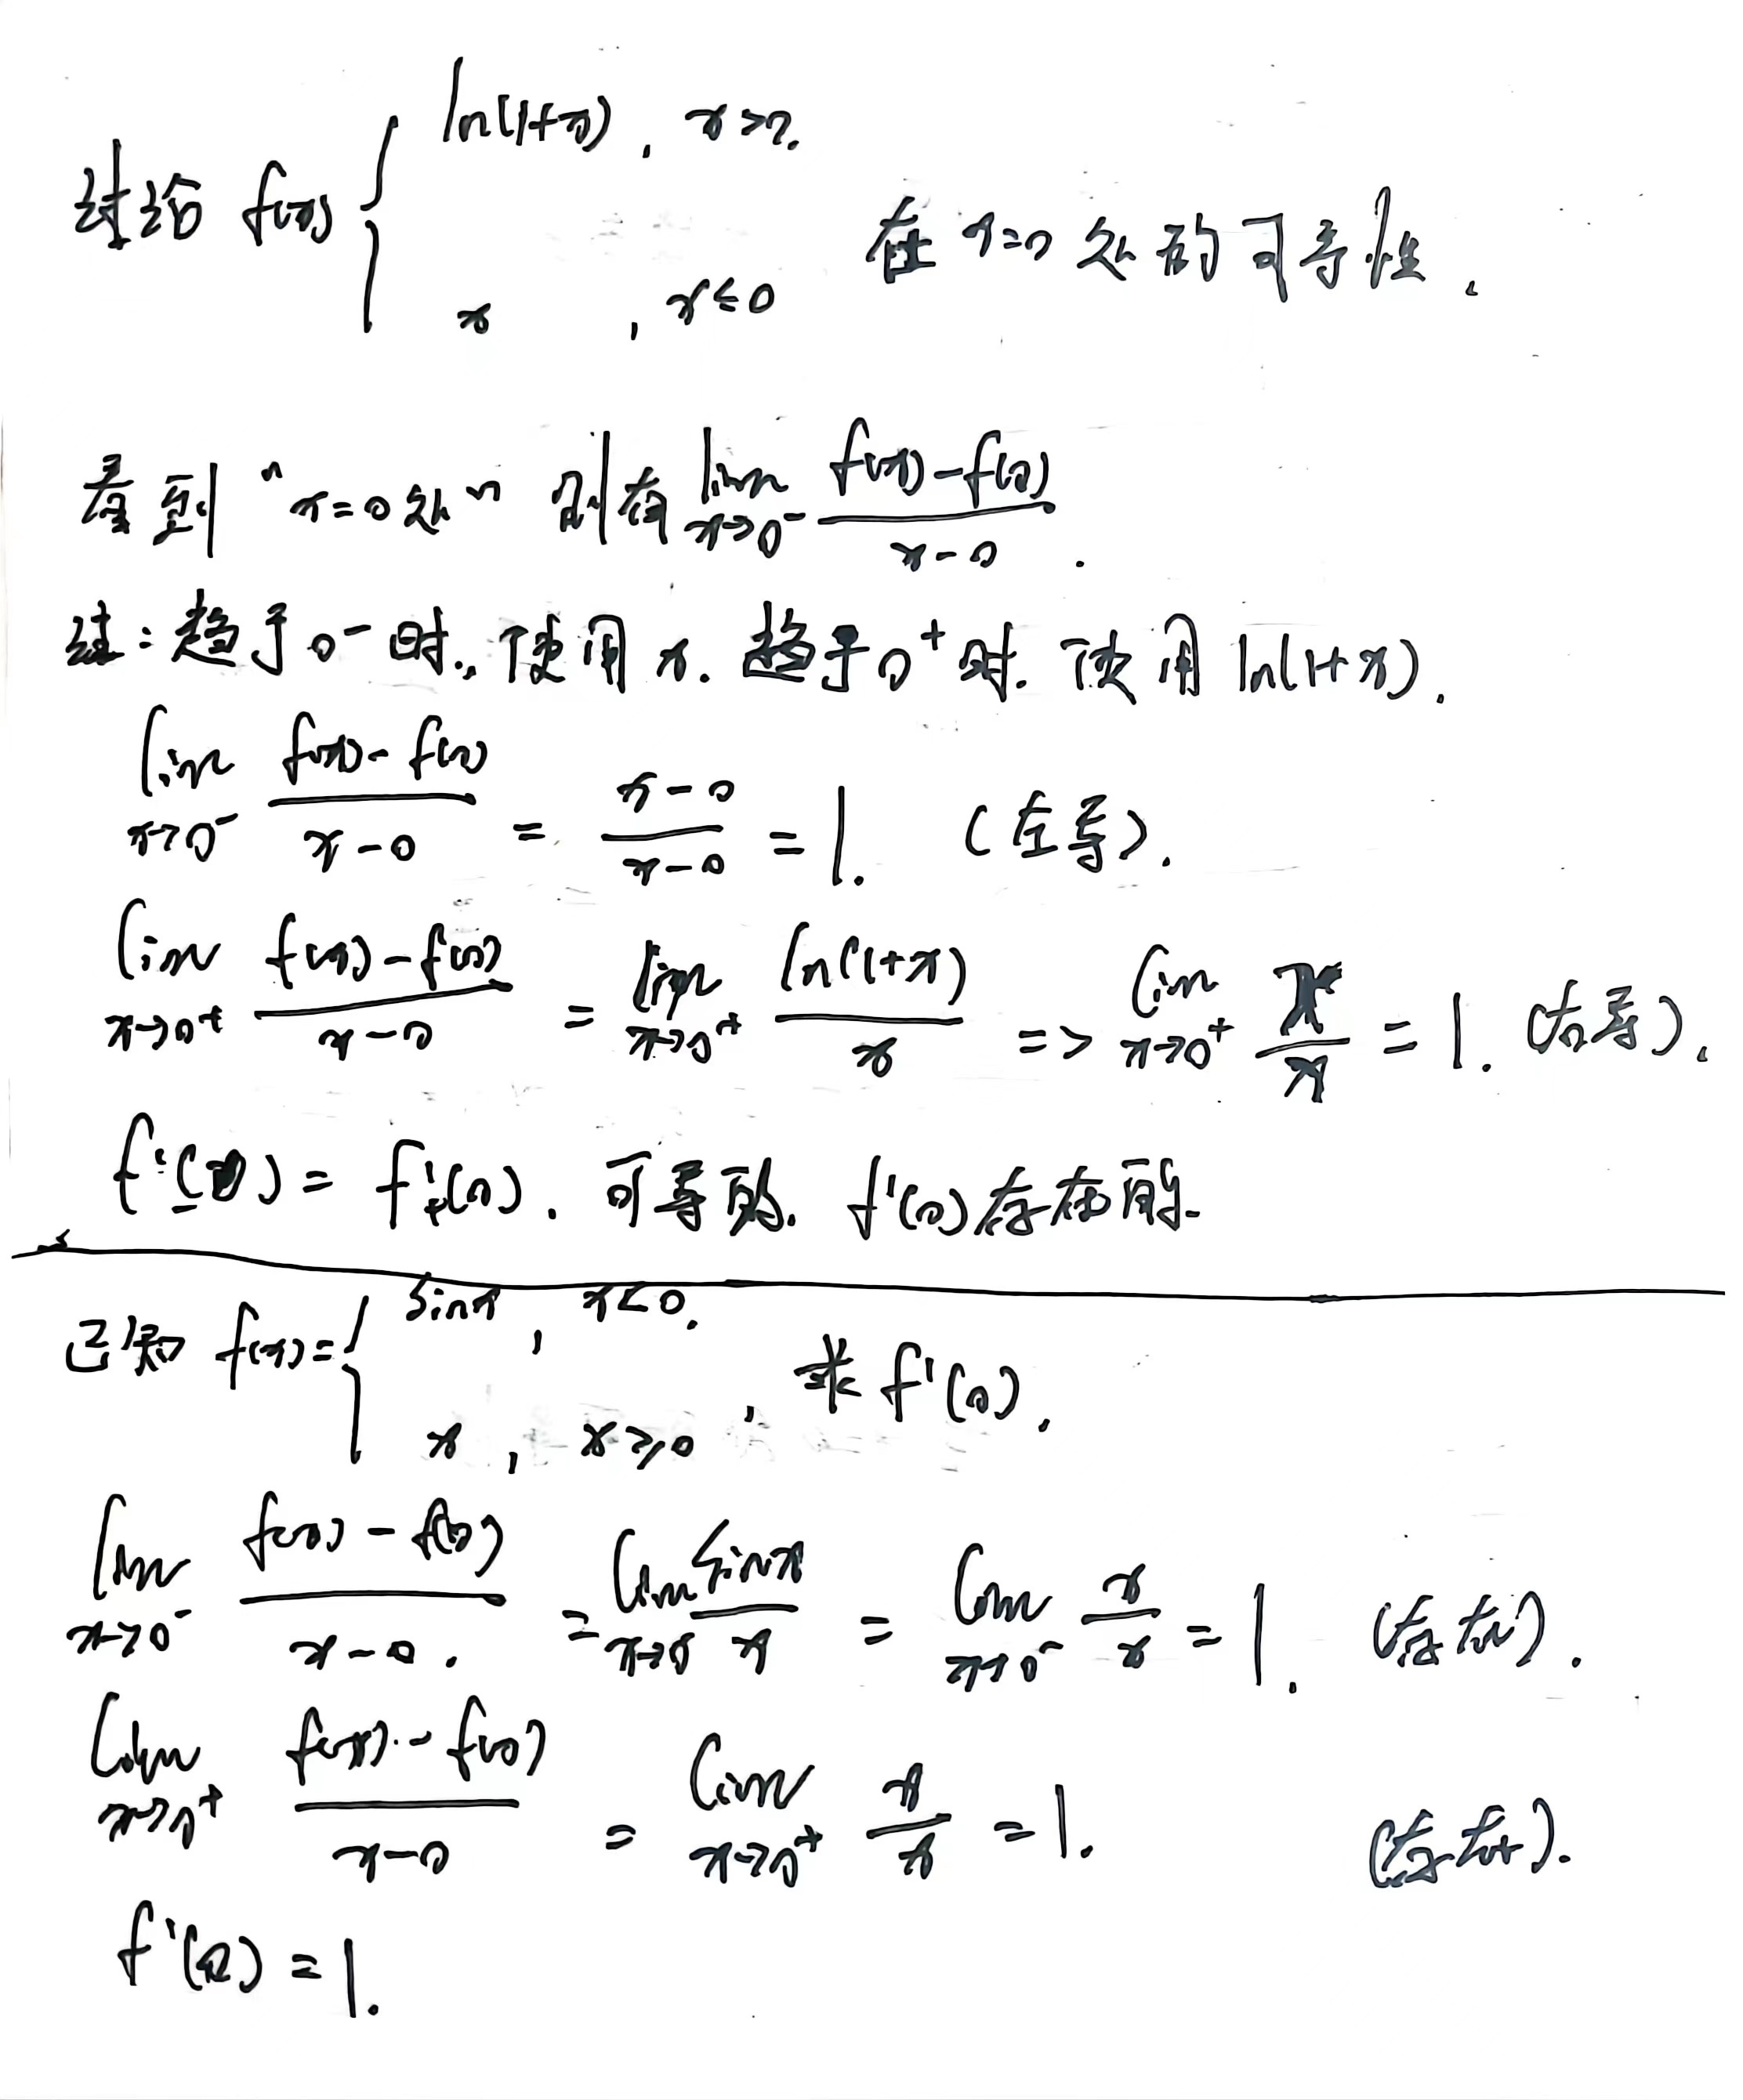 ln(1+x), x>0.
讨论 f(x) { 在 x=0 处的可导性.
x , x≤0
看到"x=0处"则有 lim x→0⁻ (f(x)-f(0))/(x-0).
注:趋于0⁻时,使用x.趋于0⁺时.使用ln(1+x).
lim x→0⁻ (f(x)-f(0))/(x-0) = (x-0)/(x-0) = 1. (左导).
lim x→0⁺ (f(x)-f(0))/(x-0) = lim x→0⁺ ln(1+x)/x => lim x→0⁺ x/x = 1. (右导).
f'₋(0) = f'₊(0). 可导的. f'(0)存在的.
sinx , x<0.
已知 f(x)={ , 求 f'(0).
x , x≥0
lim x→0⁻ (f(x)-f(0))/(x-0). = lim x→0⁻ sinx/x = lim x→0⁻ x/x = 1. (存在).
lim x→0⁺ (f(x)-f(0))/(x-0) = lim x→0⁺ x/x = 1. (存在).
f'(0) = 1.